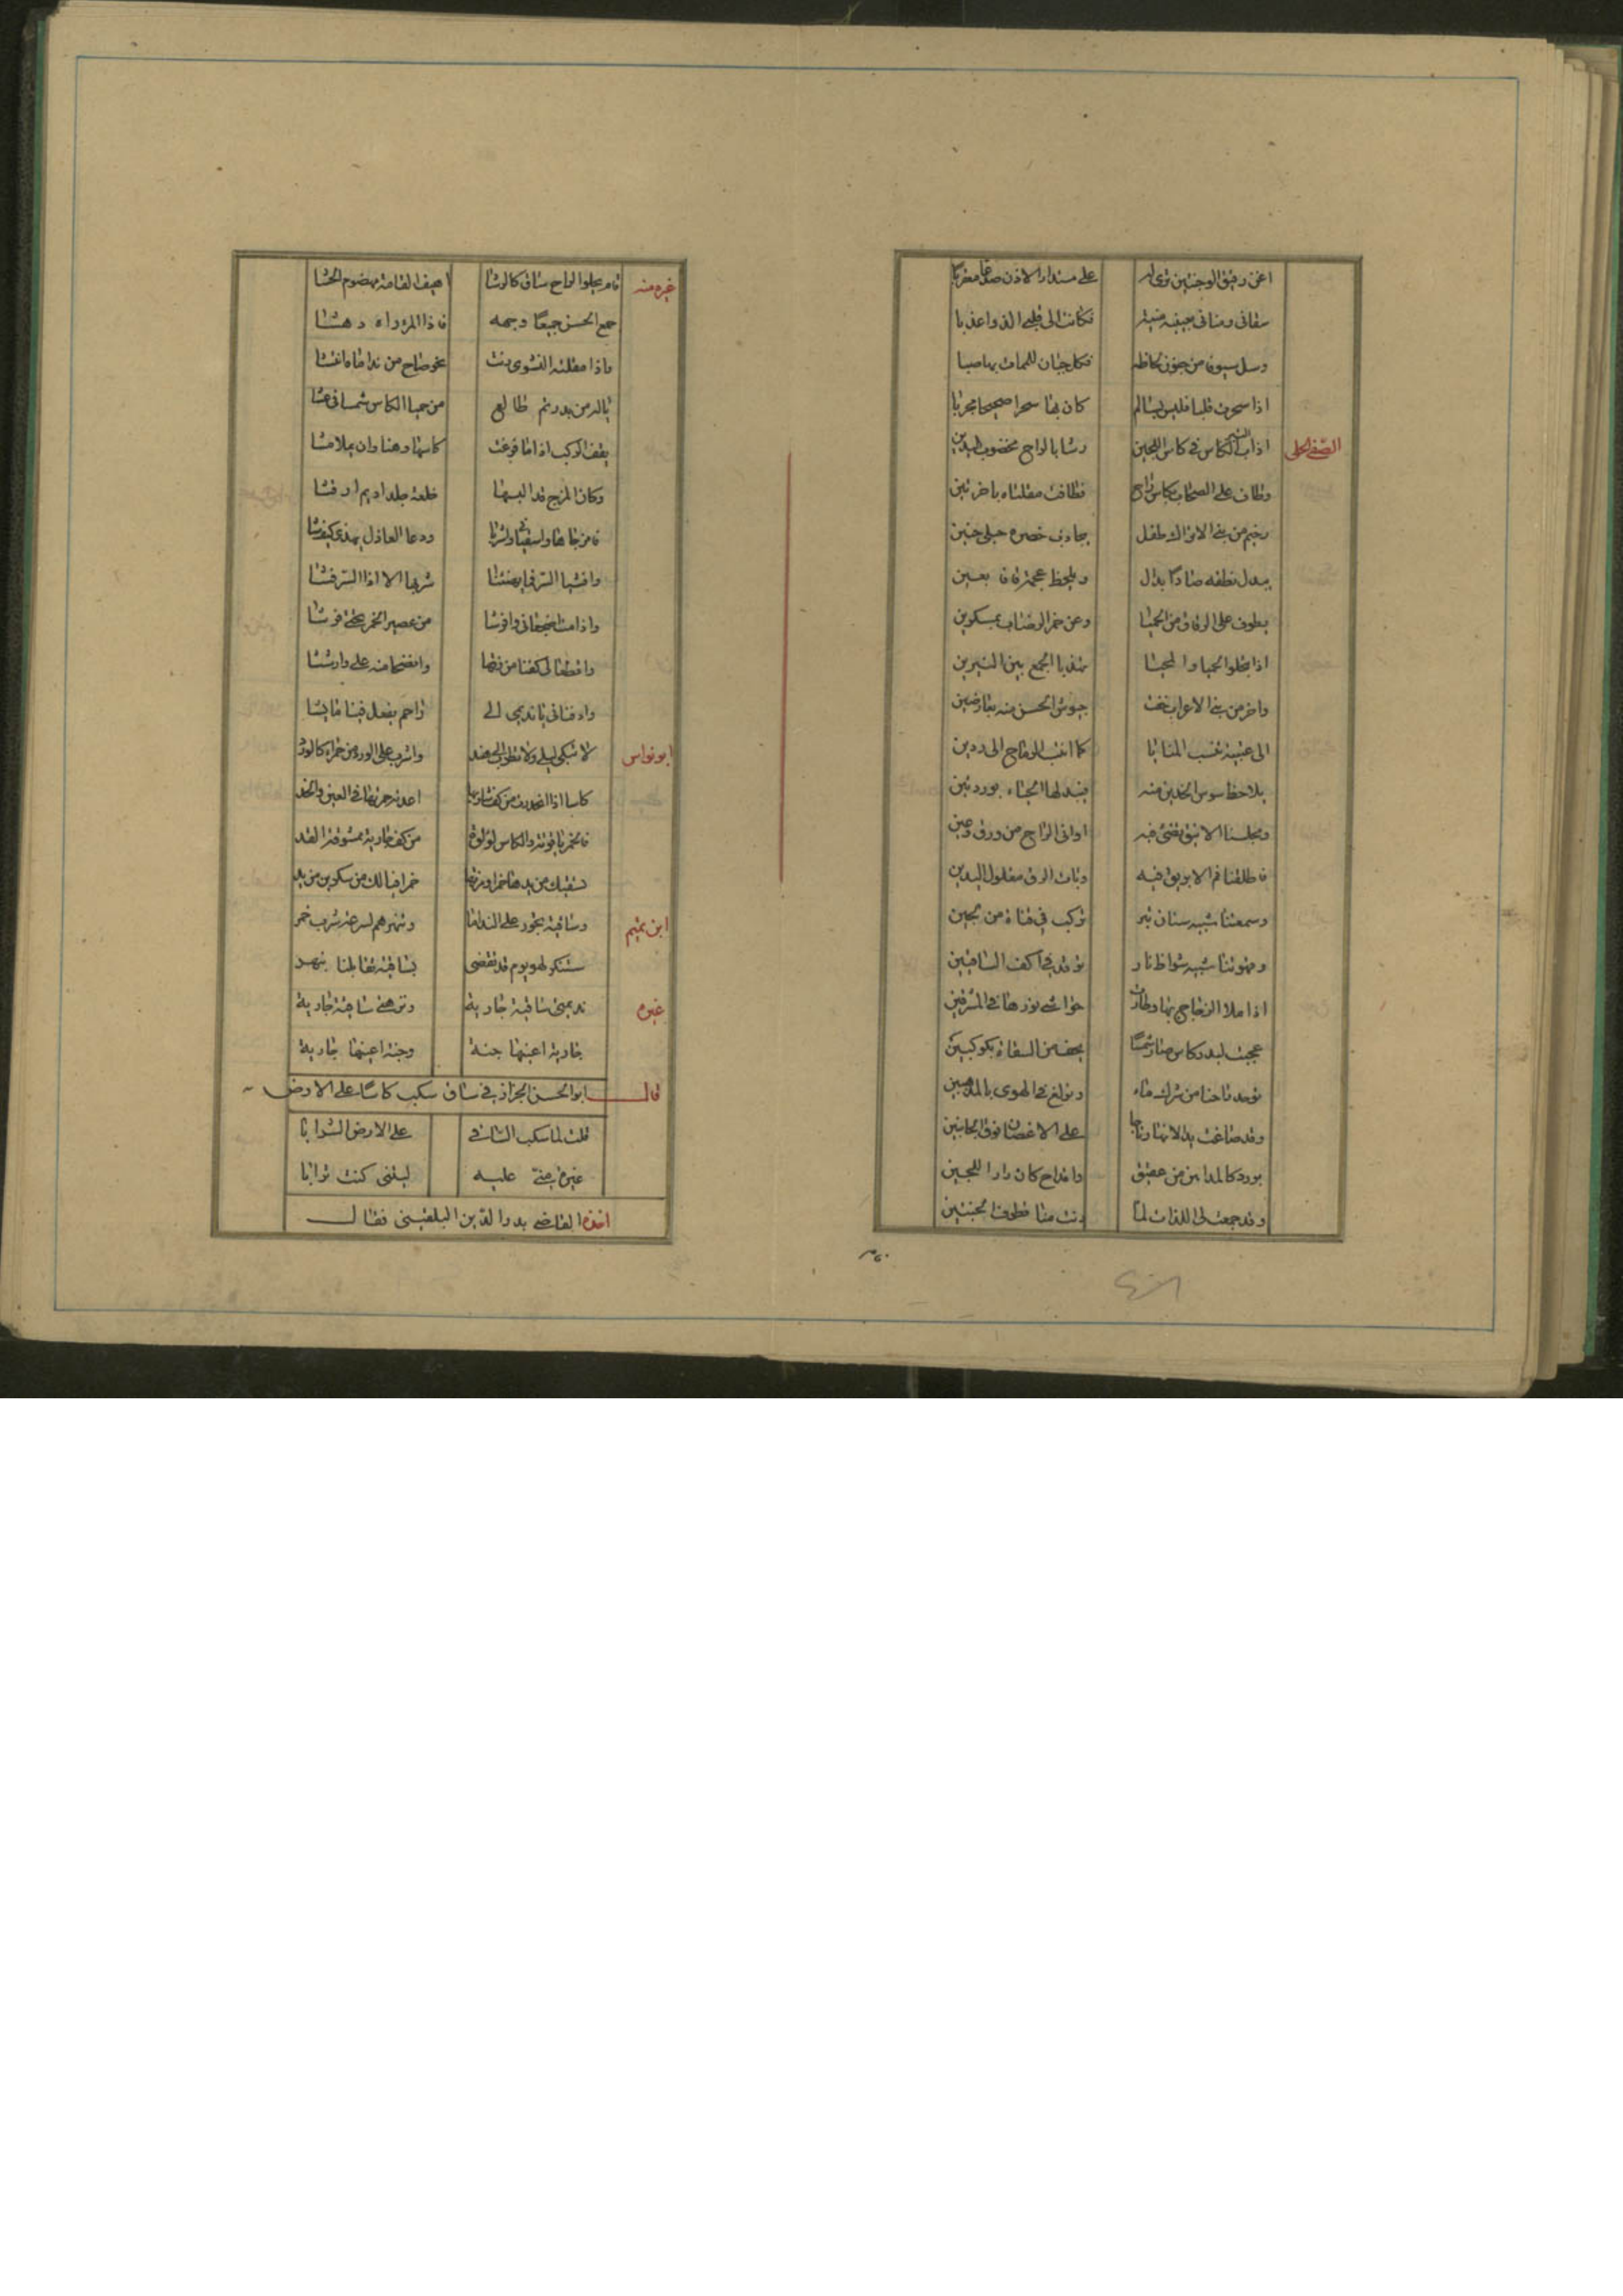 اغن رقيق الوجنتين ترى له على مستدار الاذن صدغا معقربا
سقانى ومنانى بعينيه منية فكانت الى قلبى الذ واعذبا
وسل سيوفا من جفون لحاظه فكل جبان للممات بها صبا
اذا سحرت قلبا فليس بسالم كان بها سحرا صحيحا مجربا
الصفى الحلى
اذاب التبر فى كاس اللجين رشا بالراح مخضوب اليدين
وطاف على الصحاب بكاس راح فطافت مقلتاه باخرتين
رخيم من بنى الاتراك طفل يجاذب خصره جبلى حنين
يبدل نطقه ضادا بدال ويلحظ عجمة قافا بغين
يطوف على الرفاق من الحميا وعن خمر الرضاب بمسكرين
اذا يجلوا الحميا والمحيا شهدنا الجمع بين النيرين
واخر من بنى الاعراب حفت جيوش الحسن منه بعارضين
الى عينيه تنسب المنايا كما انتسب الرماح الى ردين
يلاحظ سوسن الخدين منه فيبدلها الحياء بوردتين
ومجلسنا الانيق تضئ فيه اوانى الراح من ورق وعين
فاطلقنا فم الابريق فيه وبات الزق مغلول اليدين
وشمعتنا شبيه سنان تبر تركب فى قناة من لجين
وقهوتنا شبيه شواظ نار توقد فى اكف الساقيين
اذا ملا الزجاج بها وطارت حواشى نورها فى المشرقين
عجبت لبدر كاس صار شمسا يحف من السقاة بكوكبين
نوحد راحنا من شرك ماء ونولع فى الهوى بالمذهبين
وقد صاغت يد الانهار تاجا على الاغصان فوق الجانبين
بورد كالمداهن من عقيق واقداح كازرار اللجين
وقد جمعت لى اللذات لما دنت منا قطوف الجنتين
غيره منه
قام يجلوا الراح ساق كالرشا اهيف القامة مهضوم الحشا
جمع الحسن جميعا وجهه فاذا المرؤ راه دهشا
واذا مقلته النشوى رنت نحو صاح من نداماه انتشا
ياله من بدر تم طالع من حميا الكاس شمسا فى عشا
يقف الركب اذا ما فرغت كاسها وهنا وان يملا مشا
وكان المزج قد البسها خلعة جلد اديم ارقشا
فامزجاها واسقيانى واشربا ودعا العاذل يهذى كيف شا
وافشيا السر فما يهنئنا شربها الا اذا السر فشا
واذا مت اضجعانى وافرشا من عصير الخمر تحتى فرشا
واقطعا لى كفنا من زقها وانضحا منه على وارششا
وادفنانى يا نديمى الى راحم يفعل فينا ما يشا
ابو نواس
لا تبكى ليلى ولا تطرب الى هند واشرب على الورد من حمراء كالورد
كاسا اذا انحدرت من كف شاربها اعدته حمرتها فى العين والخد
فالخمر ياقوتة والكاس لؤلؤة من كف جارية ممشوقة القد
تسقيك من يدها خمرا ومن فمها خمرا فمالك من سكرين من بد
ابن تميم
وساقية تجور على الندامى وتنهرهم لسرعة شرب خمر
سنشكر لهو يوم قد تقضى بساقية تقابلنا بنهر
غيره
نديمتى ساقية جارية ونزهتى ساقية جارية
جارية اعينها جنة وجنة اعينها جارية
قال ابو الحسن الجزار فى ساق سكب كاسا على الارض
قلت لما سكب الساقى على الارض الشرابا
غيرة منى عليه ليتنى كنت ترابا
اخذه القاضى بدر الدين البلقينى فقال